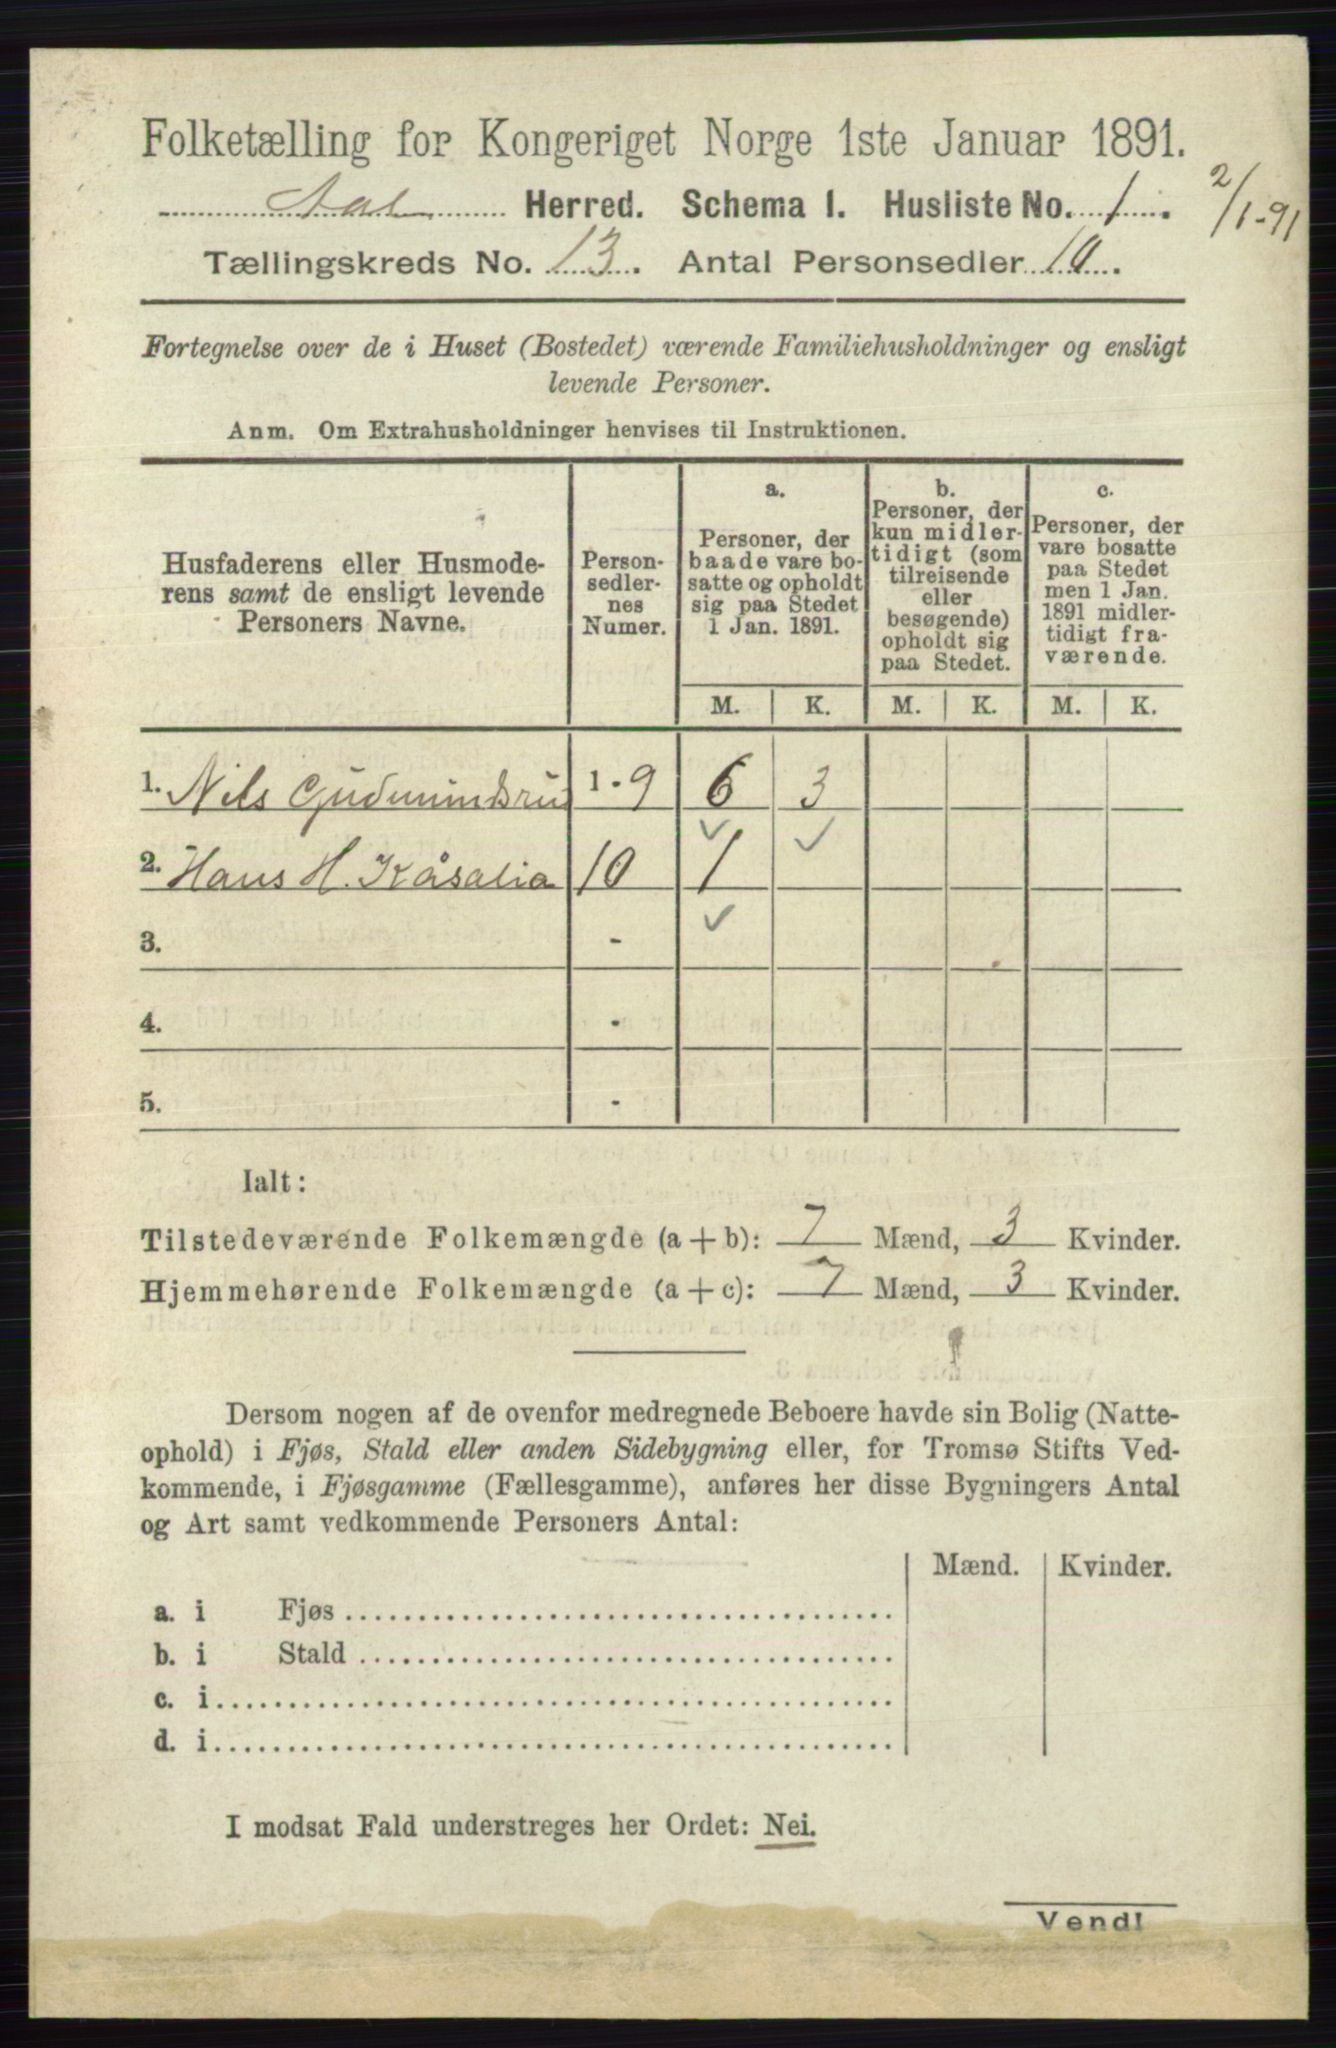 Folketælling for Kongeriget Norge 1ste Januar 1891.
Aal Herred. Schema I. Husliste No. 1. 2/1-91
Tællingskreds No. 13. Antal Personsedler 10.
Fortegnelse over de i Huset (Bostedet) værende Familiehusholdninger og ensligt
levende Personer.
Anm. Om Extrahusholdninger henvises til Instruktionen.
Husfaderens eller Husmode-
rens samt de ensligt levende
Personers Navne.
Person-
sedler-
nes
Numer.
a.
Personer, der
baade vare bo-
satte og opholdt
sig paa Stedet
1 Jan. 1891.
b.
Personer, der
kun midler-
tidigt (som
tilreisende
eller
besøgende)
opholdt sig
paa Stedet.
c.
Personer, der
vare bosatte
paa Stedet
men 1 Jan.
1891 midler-
tidigt fra-
værende.
M. K. M. K. M. K.
1. Nils Gudmundsrud 1-9 6 3
2. Hans H. Kåsalia 10 1
3. -
4. -
5. -
Ialt:
Tilstedeværende Folkemængde (a + b): 7 Mænd, 3 Kvinder.
Hjemmehørende Folkemængde (a + c): 7 Mænd, 3 Kvinder.
Dersom nogen af de ovenfor medregnede Beboere havde sin Bolig (Natte-
ophold) i Fjøs, Stald eller anden Sidebygning eller, for Tromsø Stifts Ved-
kommende, i Fjøsgamme (Fællesgamme), anføres her disse Bygningers Antal
og Art samt vedkommende Personers Antal:
Mænd. Kvinder.
a. i Fjøs
b. i Stald
c. i
d. i
I modsat Fald understreges her Ordet: Nei.
Vend!